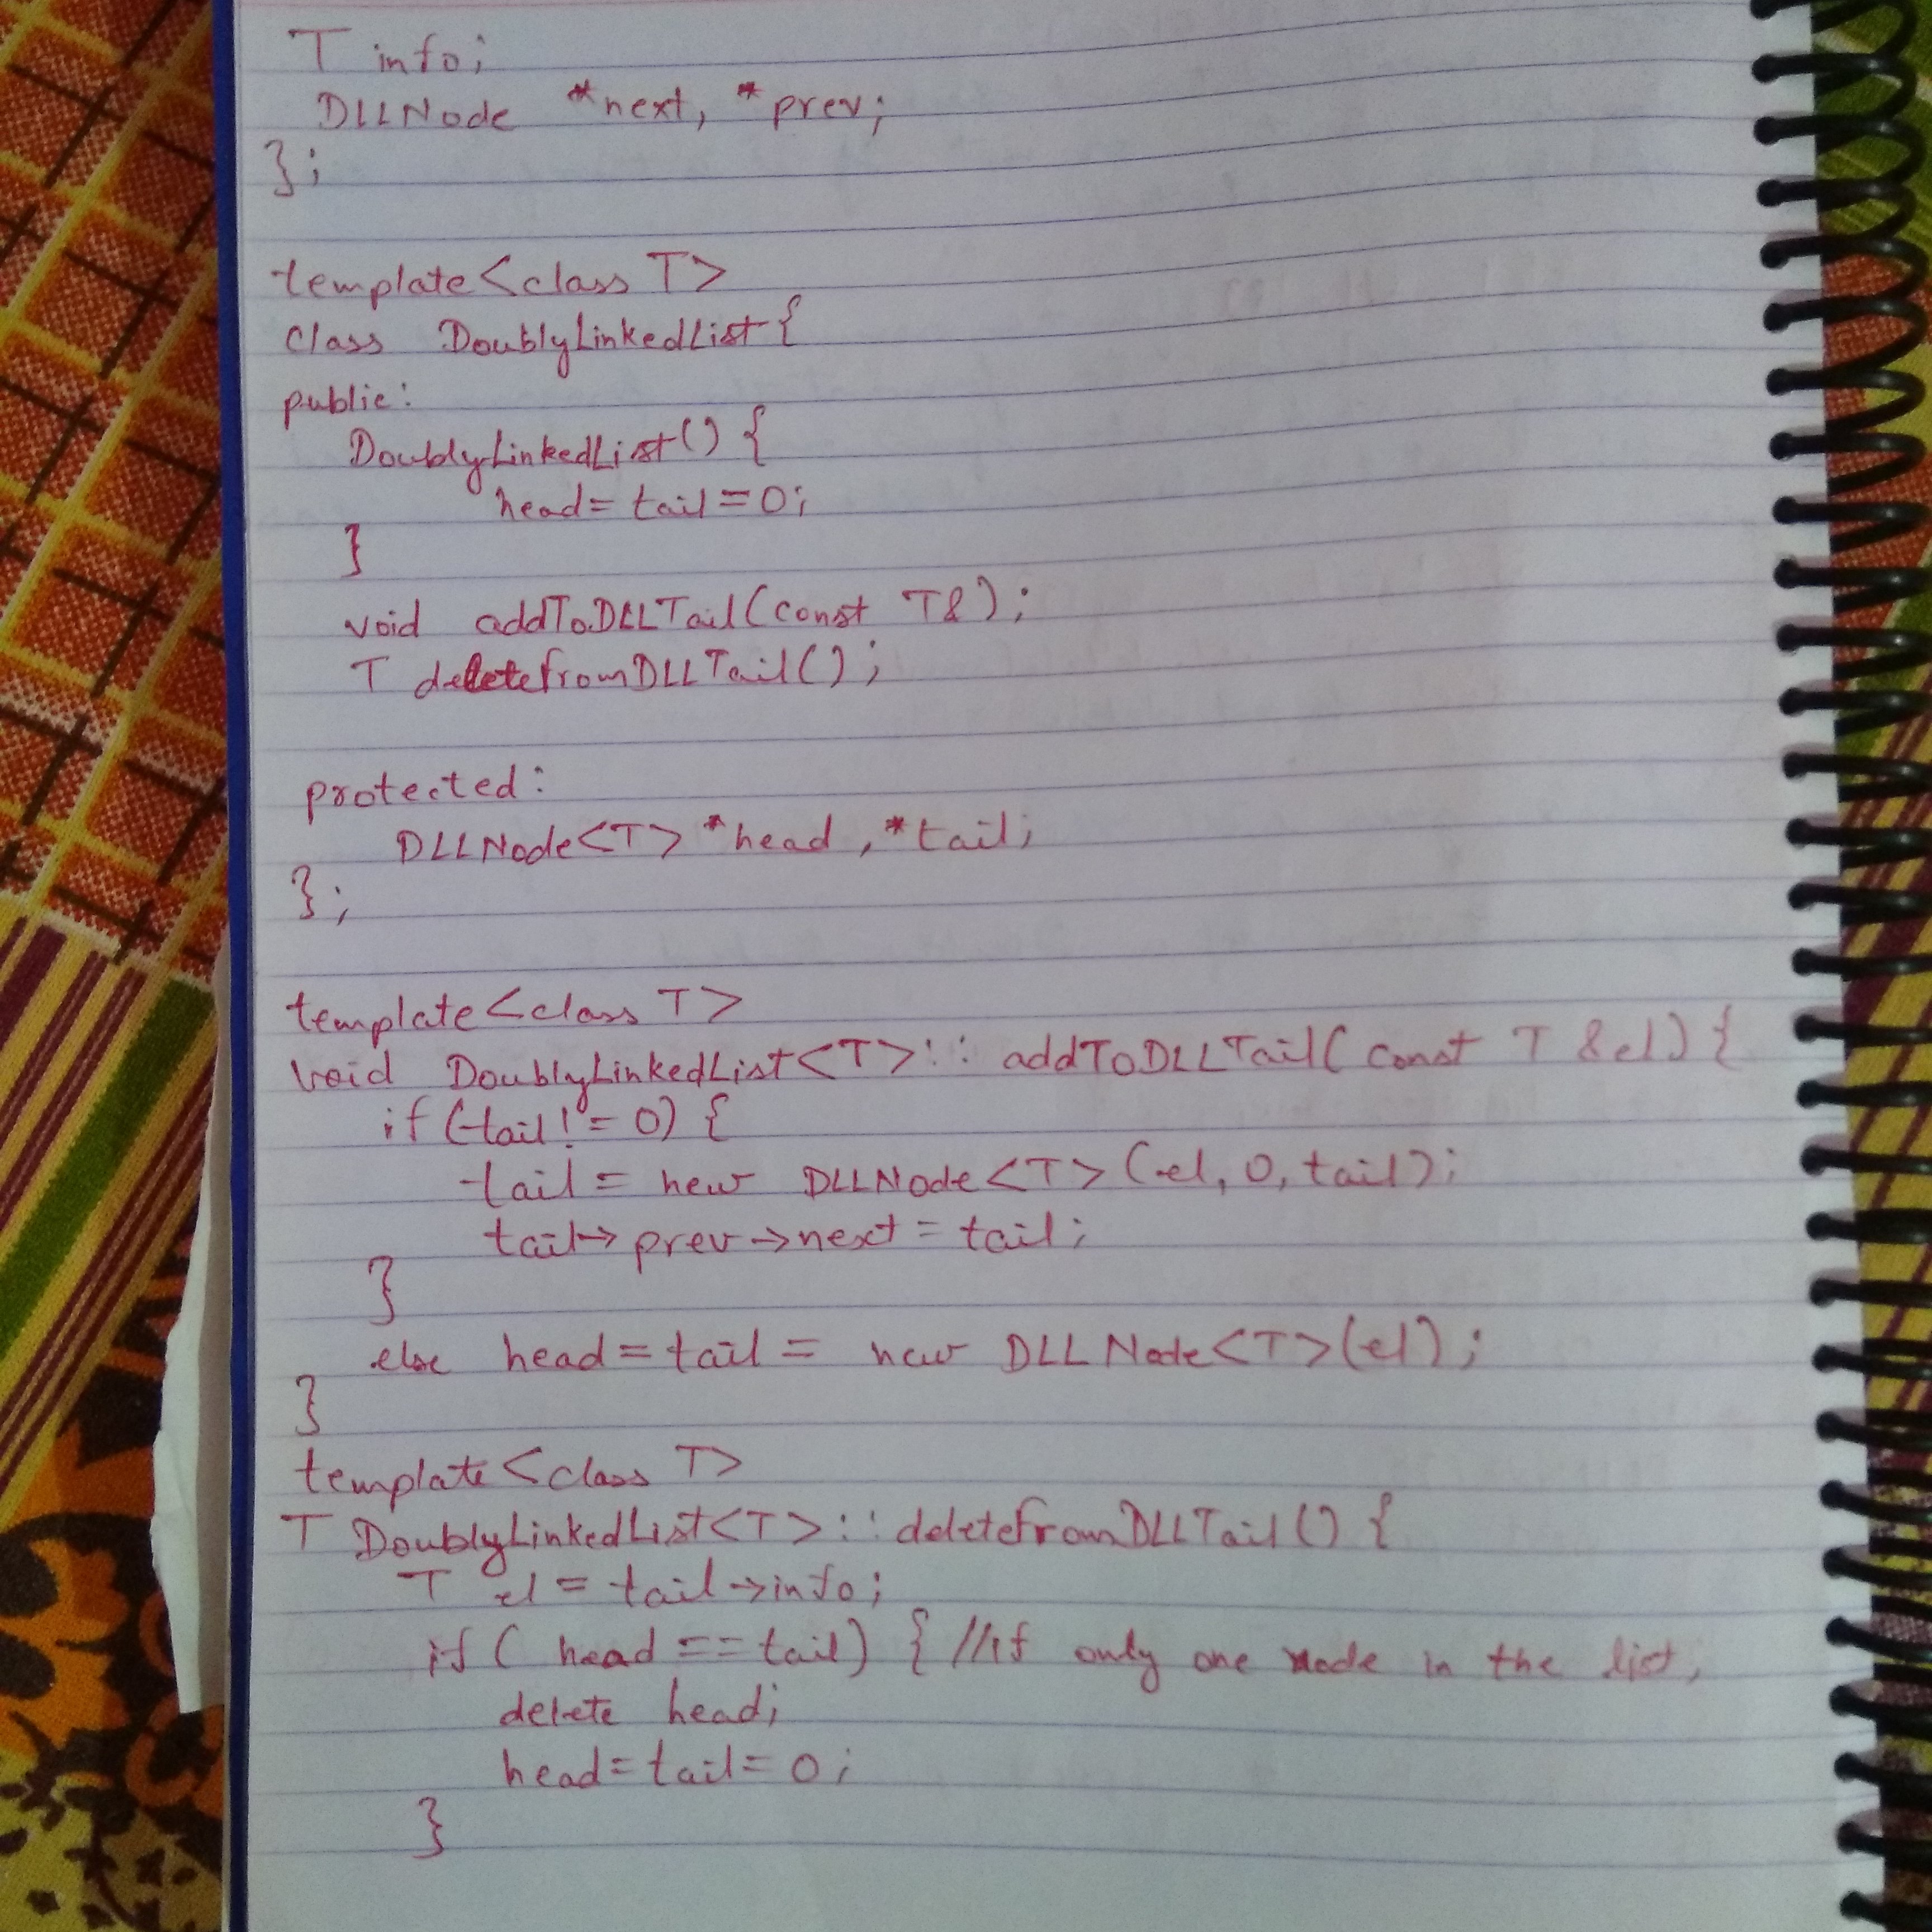 T info;
DLLNode *next, *prev;
};
template<class T>
class DoublyLinkedList{
public:
DoublyLinkedList() {
head = tail = 0;
}
void addToDLLTail(const T&);
T deletefromDLLTail();
protected:
DLLNode<T> *head, *tail;
};
template<class T>
void DoublyLinkedList<T>:: addToDLLTail(const T &el) {
if (tail != 0) {
tail = new DLLNode<T>(el, 0, tail);
tail->prev->next = tail;
}
else head = tail = new DLLNode<T>(el);
}
template<class T>
T DoublyLinkedList<T>:: deletefromDLLTail() {
T el = tail->info;
if ( head == tail) { //if only one node in the list,
delete head;
head = tail = 0;
}